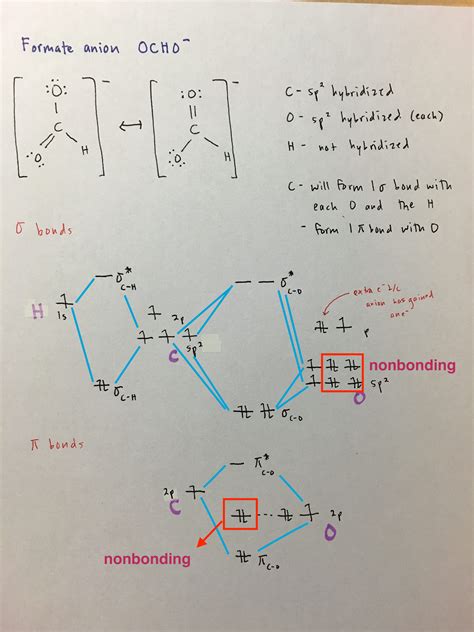 Formate anion OCHO⁻
:Ö:
C
:Ö:
H
-
↔
:O:
C
:Ö:
H
-
C - sp² hybridized
O - sp² hybridized (each)
H - not hybridized
C - will form 1 σ bond with
each O and the H
- form 1 π bond with O
σ bonds
σ* C-H
H 1s
2p
sp²
C
σ C-H
σ* C-O
extra e⁻ b/c
anion has gained
one
p
nonbonding
sp²
O
σ C-O
π bonds
π* C-O
2p
C
2p
O
nonbonding
π C-O